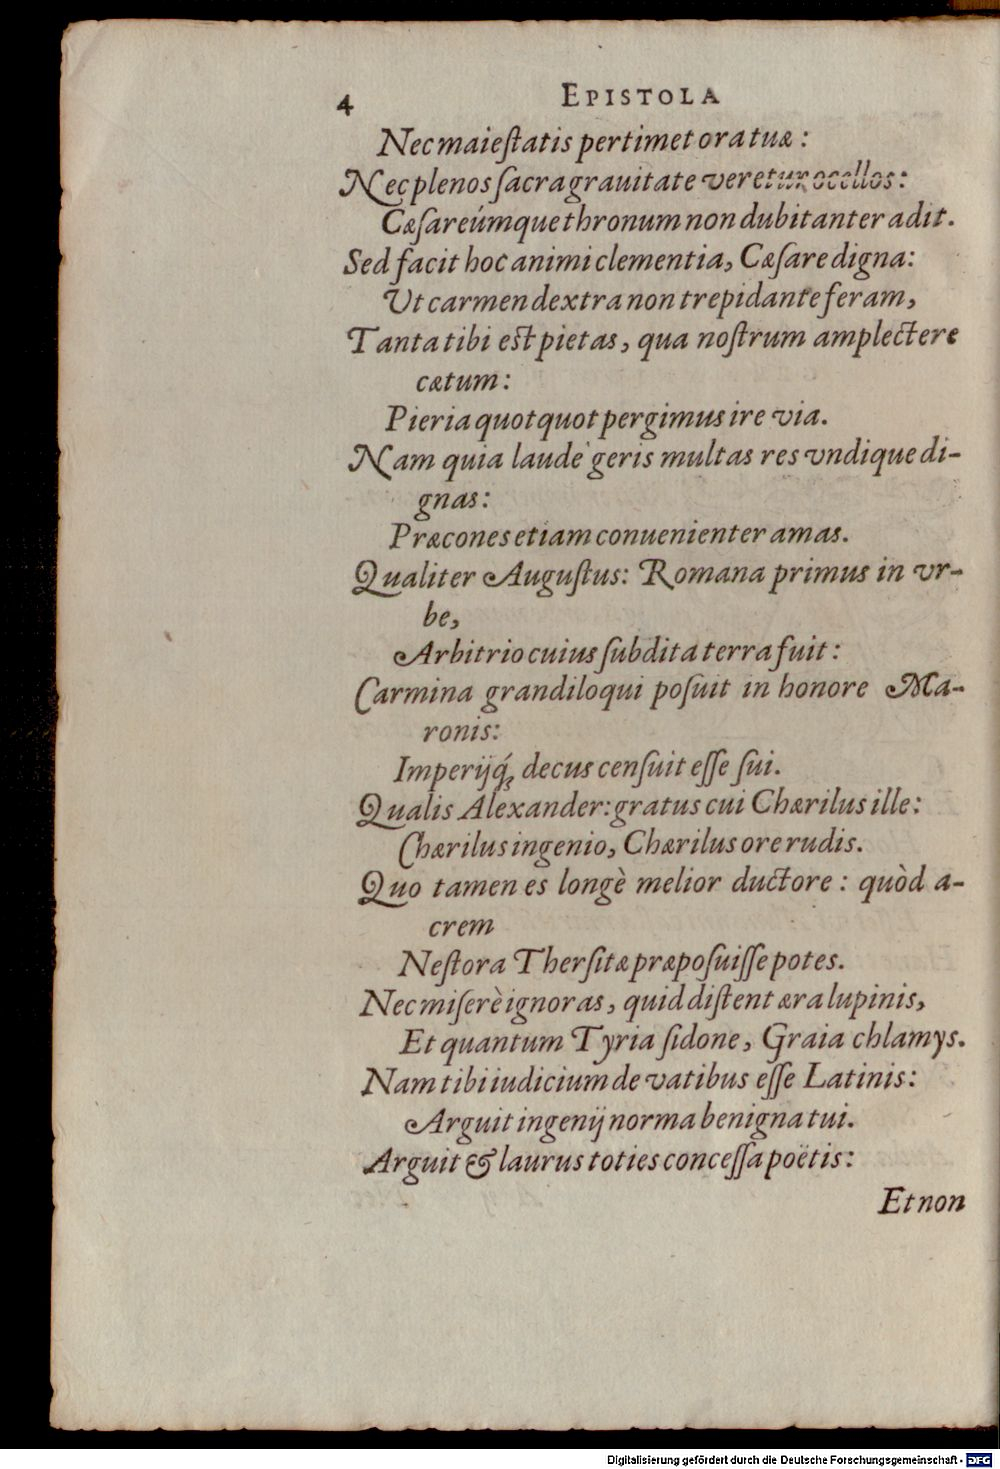 4 EPISTOLA
Nec maieſtatis pertimet ora tuæ:
Nec plenos ſacra grauitate veretur ocellos:
Cæſareúmque thronum non dubitanter adit.
Sed facit hoc animi clementia, Cæſare digna:
Ut carmen dextra non trepidante feram,
Tanta tibi eſt pietas, qua noſtrum amplectere
cætum:
Pieria quotquot pergimus ire via.
Nam quia laude geris multas res vndique di-
gnas:
Præcones etiam conuenienter amas.
Qualiter Auguſtus: Romana primus in vr-
be,
Arbitrio cuius ſubdita terra fuit:
Carmina grandiloqui poſuit in honore Ma-
ronis:
Imperijq́; decus cenſuit eſſe ſui.
Qualis Alexander: gratus cui Chærilus ille:
Chærilus ingenio, Chærilus ore rudis.
Quo tamen es longè melior ductore: quòd a-
crem
Neſtora Therſitæ præpoſuiſſe potes.
Nec miſerè ignoras, quid diſtent æra lupinis,
Et quantum Tyria ſidone, Graia chlamys.
Nam tibi iudicium de vatibus eſſe Latinis:
Arguit ingenij norma benigna tui.
Arguit & laurus toties conceſſa poëtis:
Et non
Digitalisierung gefördert durch die Deutsche Forschungsgemeinschaft - DFG